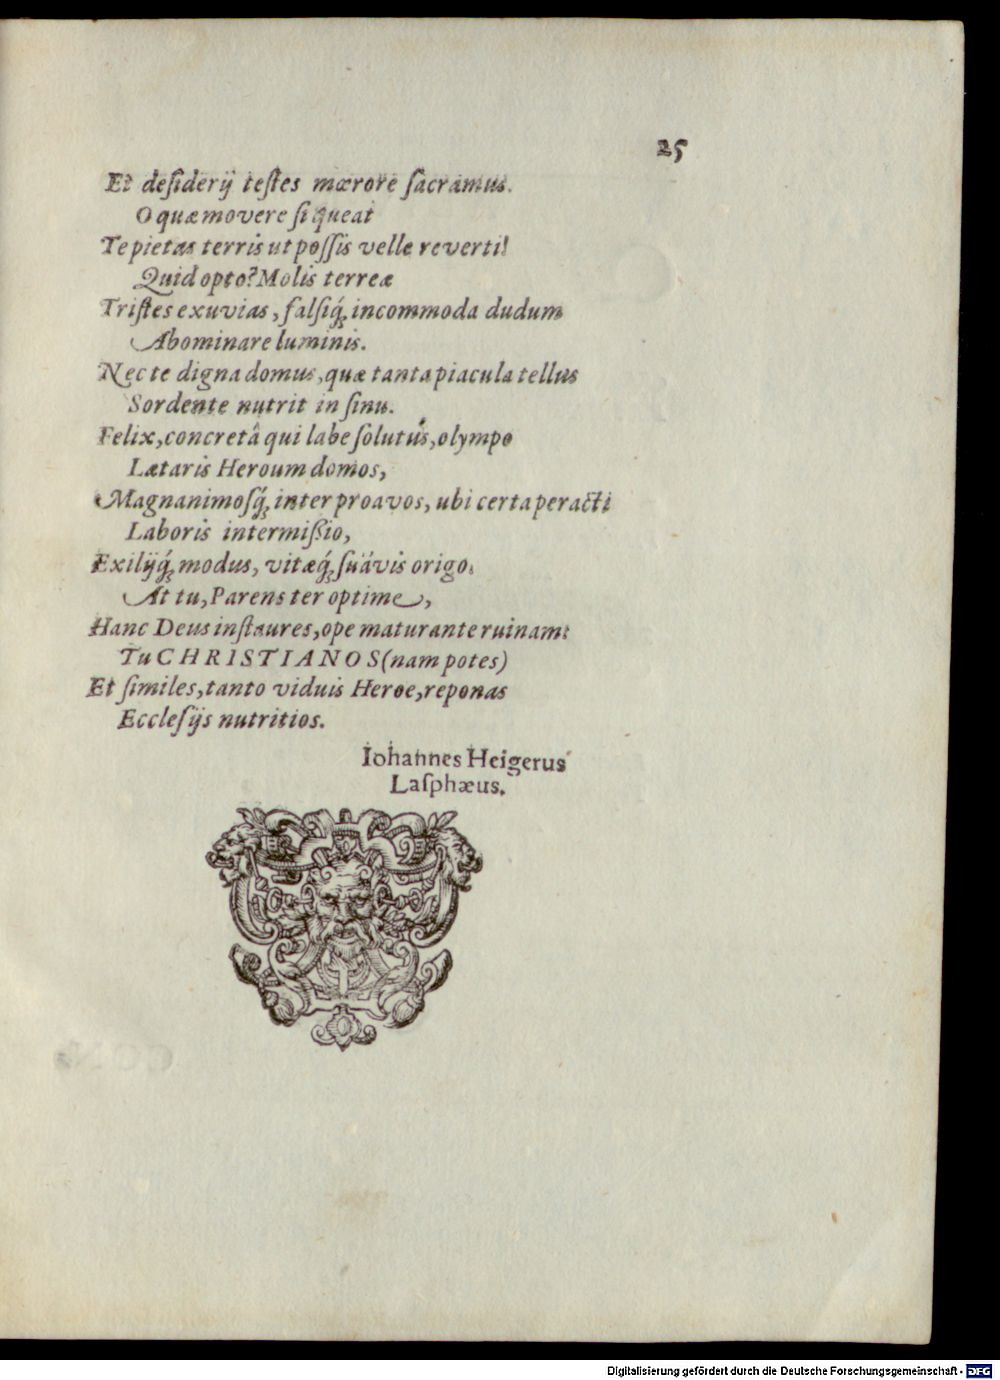 25
Et deſiderij teſtes mœrore ſacramus.
O quæ movere ſi queat
Te pietas terris ut poſſis velle reverti!
Quid opto? Molis terreæ
Triſtes exuvias, falſiq́ꝫ incommoda dudum
Abominare luminis.
Nec te digna domus, quæ tanta piacula tellus
Sordente nutrit in ſinu.
Felix, concretâ qui labe ſolutus, olympo
Lætaris Heroum domos,
Magnanimoſq́ꝫ inter proavos, ubi certa peracti
Laboris intermißio,
Exilijq́ꝫ modus, vitæq́ꝫ ſuävis origo.
At tu, Parens ter optime,
Hanc Deus inſtaures, ope maturante ruinam:
Tu CHRISTIANOS (nam potes)
Et ſimiles, tanto viduis Heroe, reponas
Eccleſijs nutritios.
Iohannes Heigerus
Laſphæus.
Digitalisierung gefördert durch die Deutsche Forschungsgemeinschaft - DFG